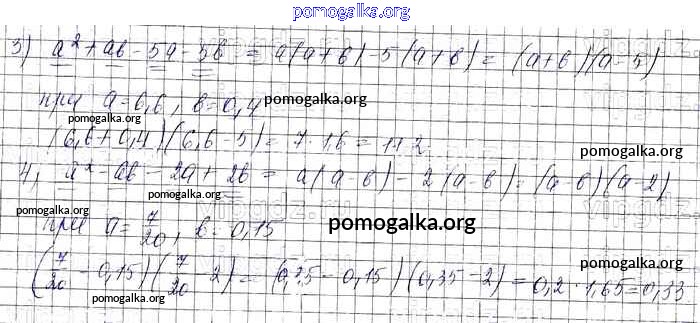 pomogalka.org
3) a² + ab - 5a - 5b = a(a+b) - 5(a+b) = (a+b)(a-5)
при a=6,6, b=0,4 pomogalka.org
(6,6+0,4)(6,6-5) = 7·1,6 = 11,2 pomogalka.org
4) a² - ab - 2a + 2b = a(a-b) - 2(a-b) = (a-b)(a-2)
pomogalka.org pomogalka.org
при a=7/20, b=0,15 pomogalka.org
(7/20 - 0,15)(7/20 - 2) = (0,35 - 0,15)(0,35 - 2) = 0,2 · 1,65 = 0,33
pomogalka.org pomogalka.org